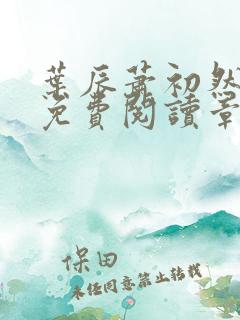 葉辰蕭初然
免費閱讀章
保田
未經同意禁止轉載